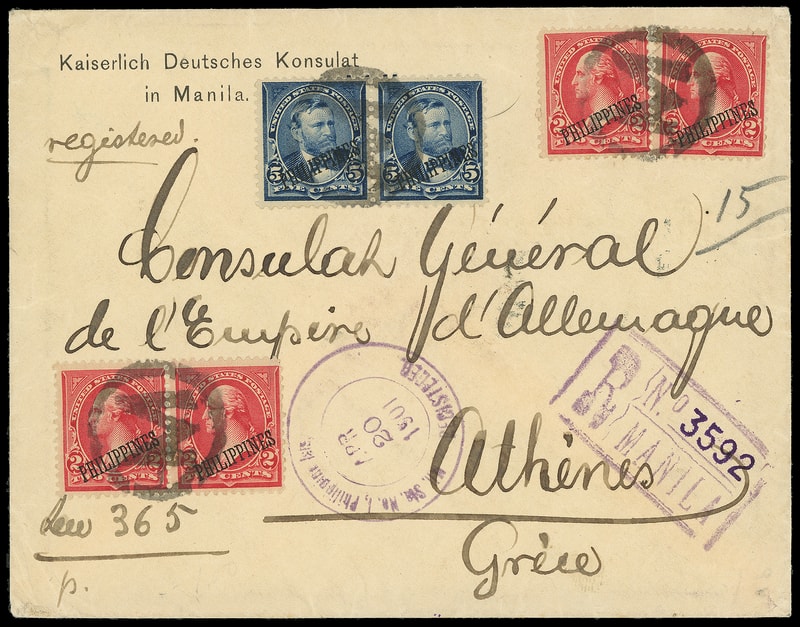 Kaiserlich Deutsches Konsulat
in Manila.
registered.
UNITED STATES POSTAGE
UNITED STATES POSTAGE
PHILIPPINES
PHILIPPINES
2 2
TWO CENTS
2 2
TWO CENTS
UNITED STATES POSTAGE
UNITED STATES POSTAGE
PHILIPPINES
PHILIPPINES
5 5
FIVE CENTS
5 5
FIVE CENTS
15
Consulat Général
de l'Empire d'Allemagne
Athènes
Grèce
UNITED STATES POSTAGE
UNITED STATES POSTAGE
PHILIPPINES
PHILIPPINES
2 2
TWO CENTS
2 2
TWO CENTS
REGISTERED
APR
20
1901
Sta. No. 1, Philippine Isls.
R
No 3592
MANILA
365
p.